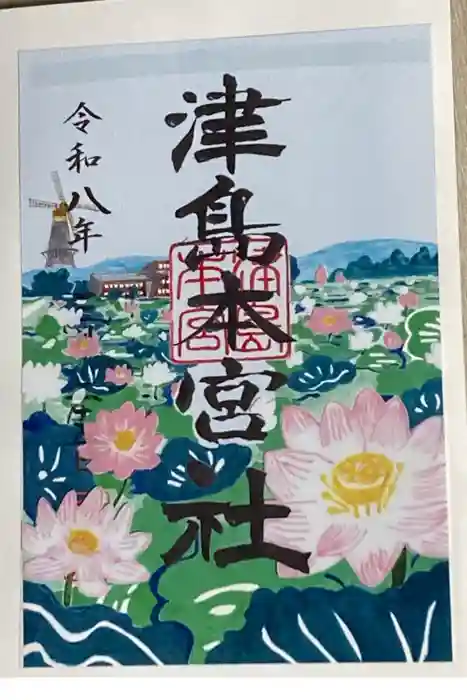 津島本宮社
令和八年